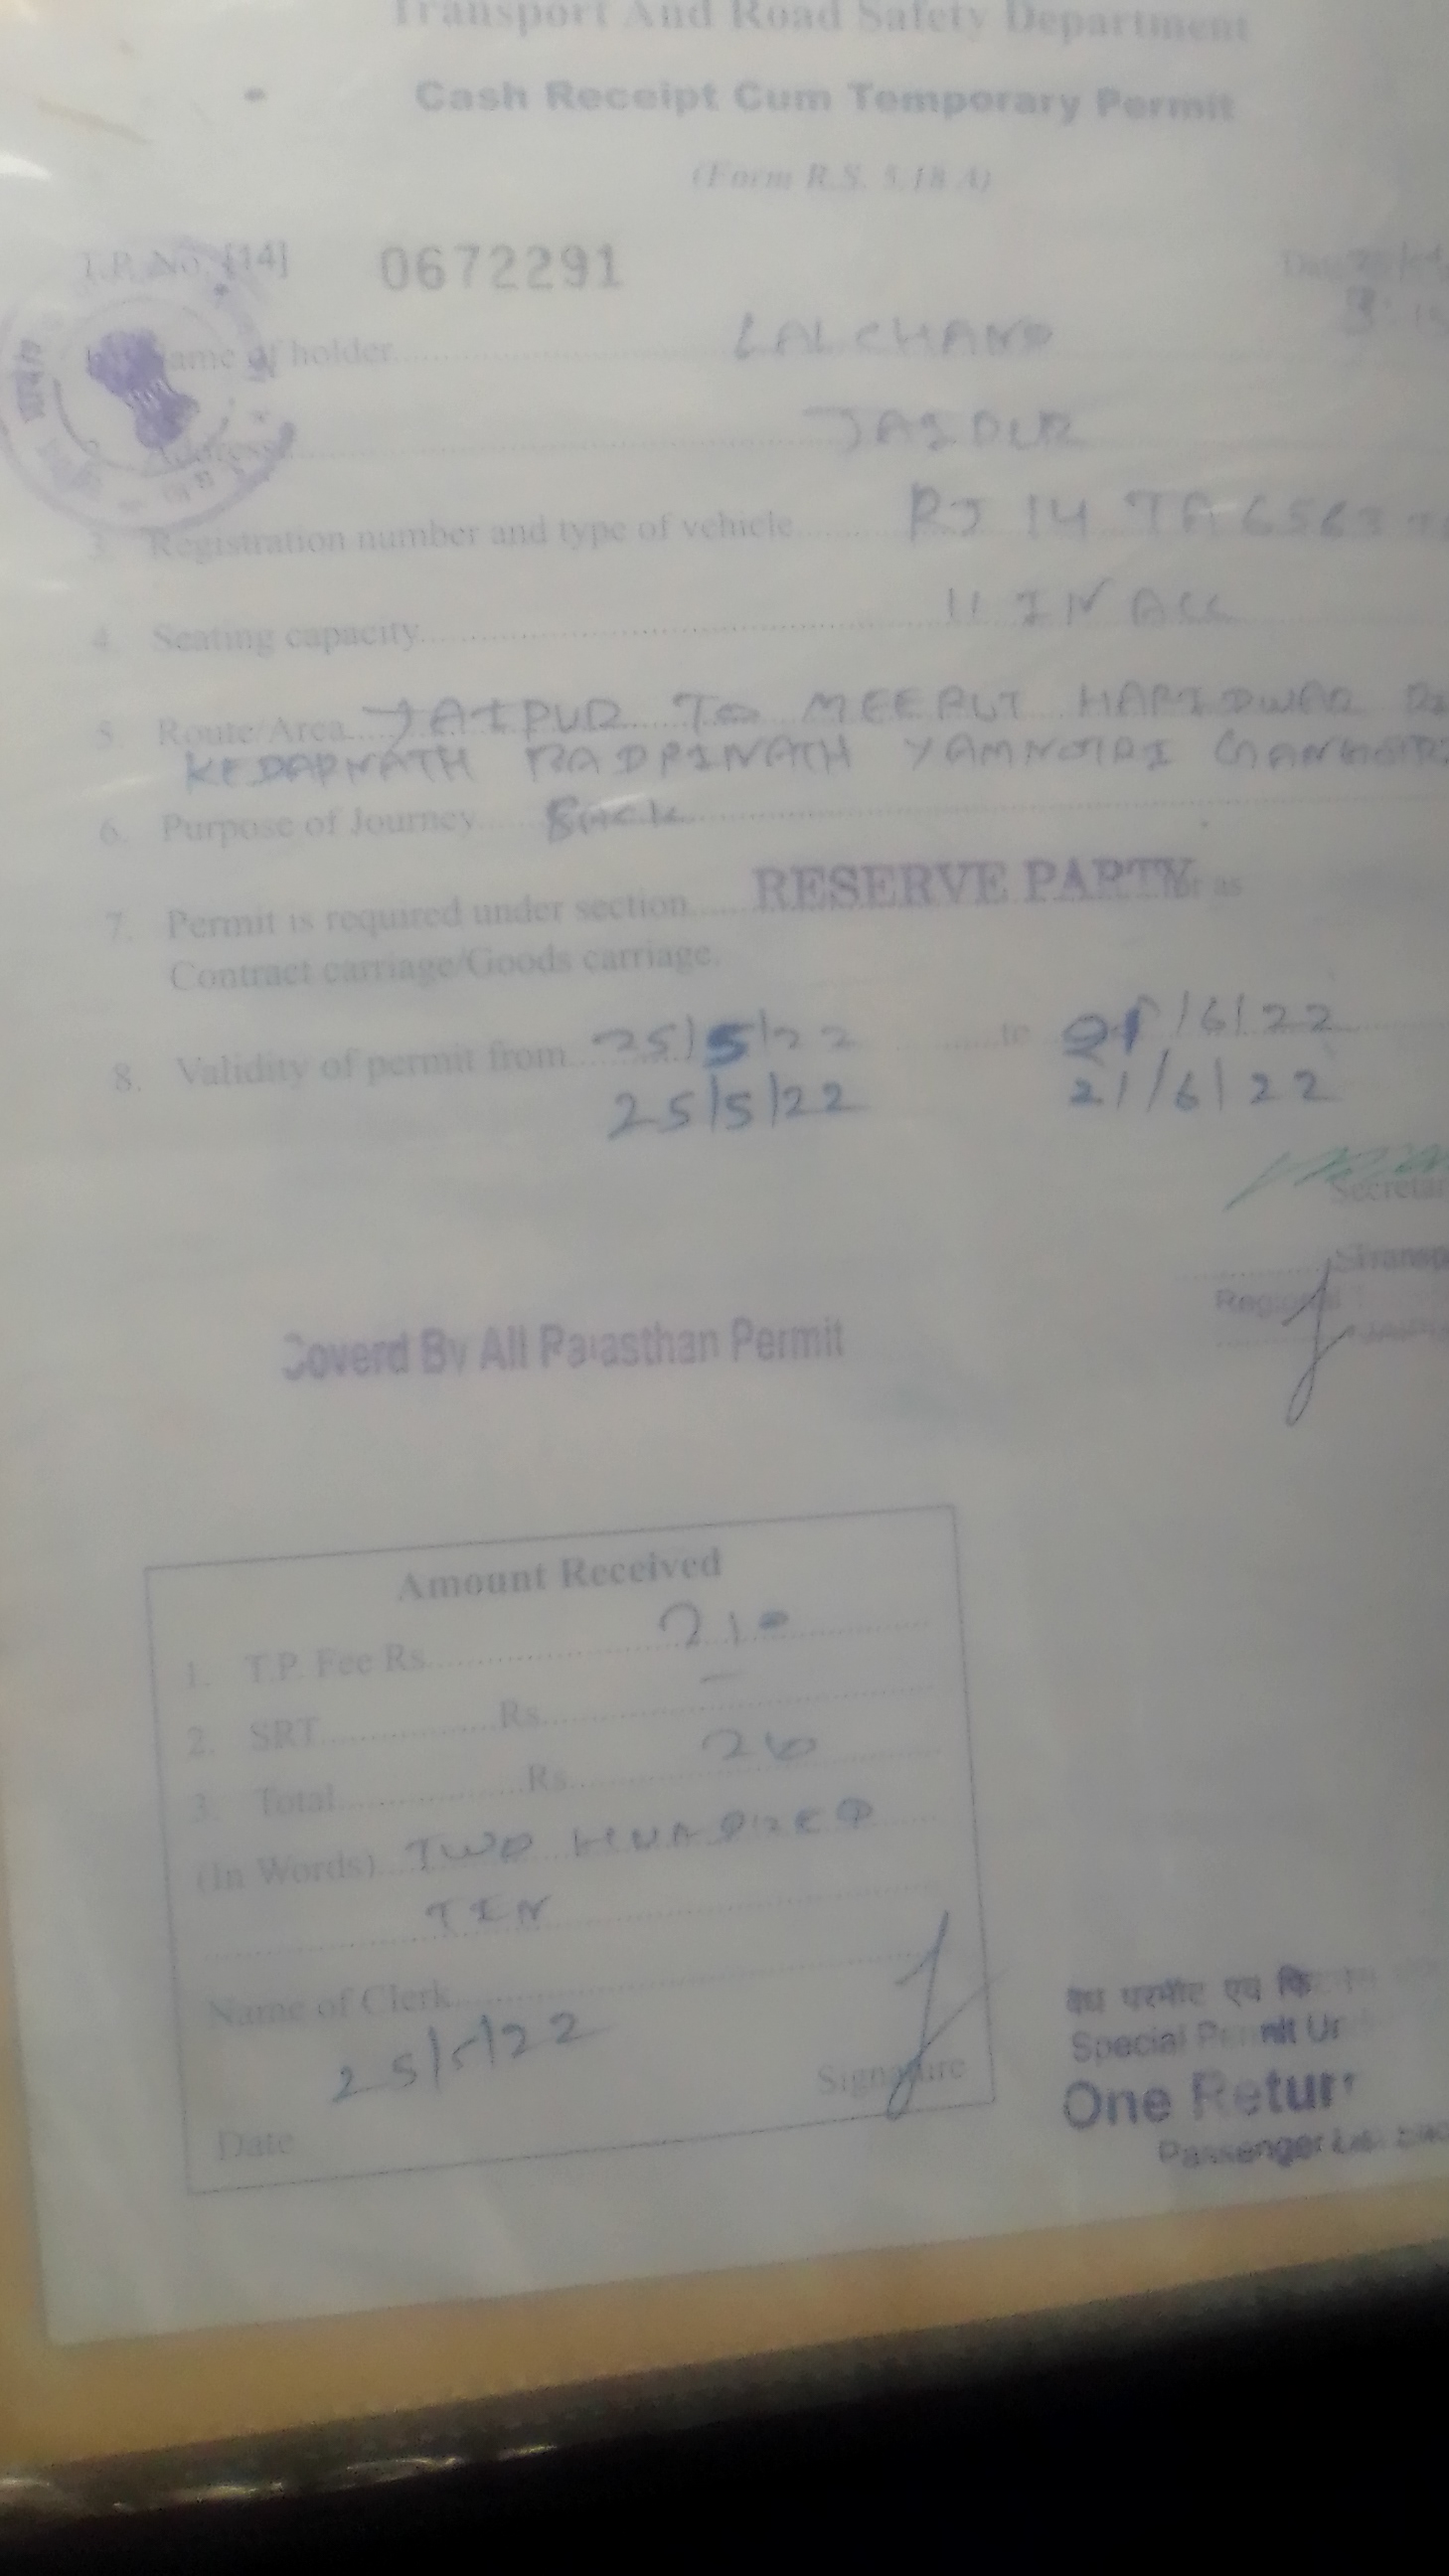 Transport And Road Safety Department
Cash Receipt Cum Temporary Permit
(Form R.S. 5.18 A)
T.P. No. [14] 0672291
Name of holder LALCHAND
Address JAIPUR
3. Registration number and type of vehicle RJ 14 TA 6563
4. Seating capacity 11 IN ALL
5. Route/Area JAIPUR TO MEERUT HARIDWAR
KEDARNATH BADRINATH YAMNOTRI
6. Purpose of Journey Back
7. Permit is required under section RESERVE PARTY or as
Contract carriage/Goods carriage.
8. Validity of permit from 25/5/22 to 21/6/22
25/5/22 21/6/22
Coverd By All Rajasthan Permit
Amount Received
1. T.P. Fee Rs. 210
2. SRT Rs. –
3. Total Rs. 210
(In Words) TWO HUNDRED
TEN
Name of Clerk
25/5/22
Signature
Date
परमीट एव
Special Permit
One Return
Passenger